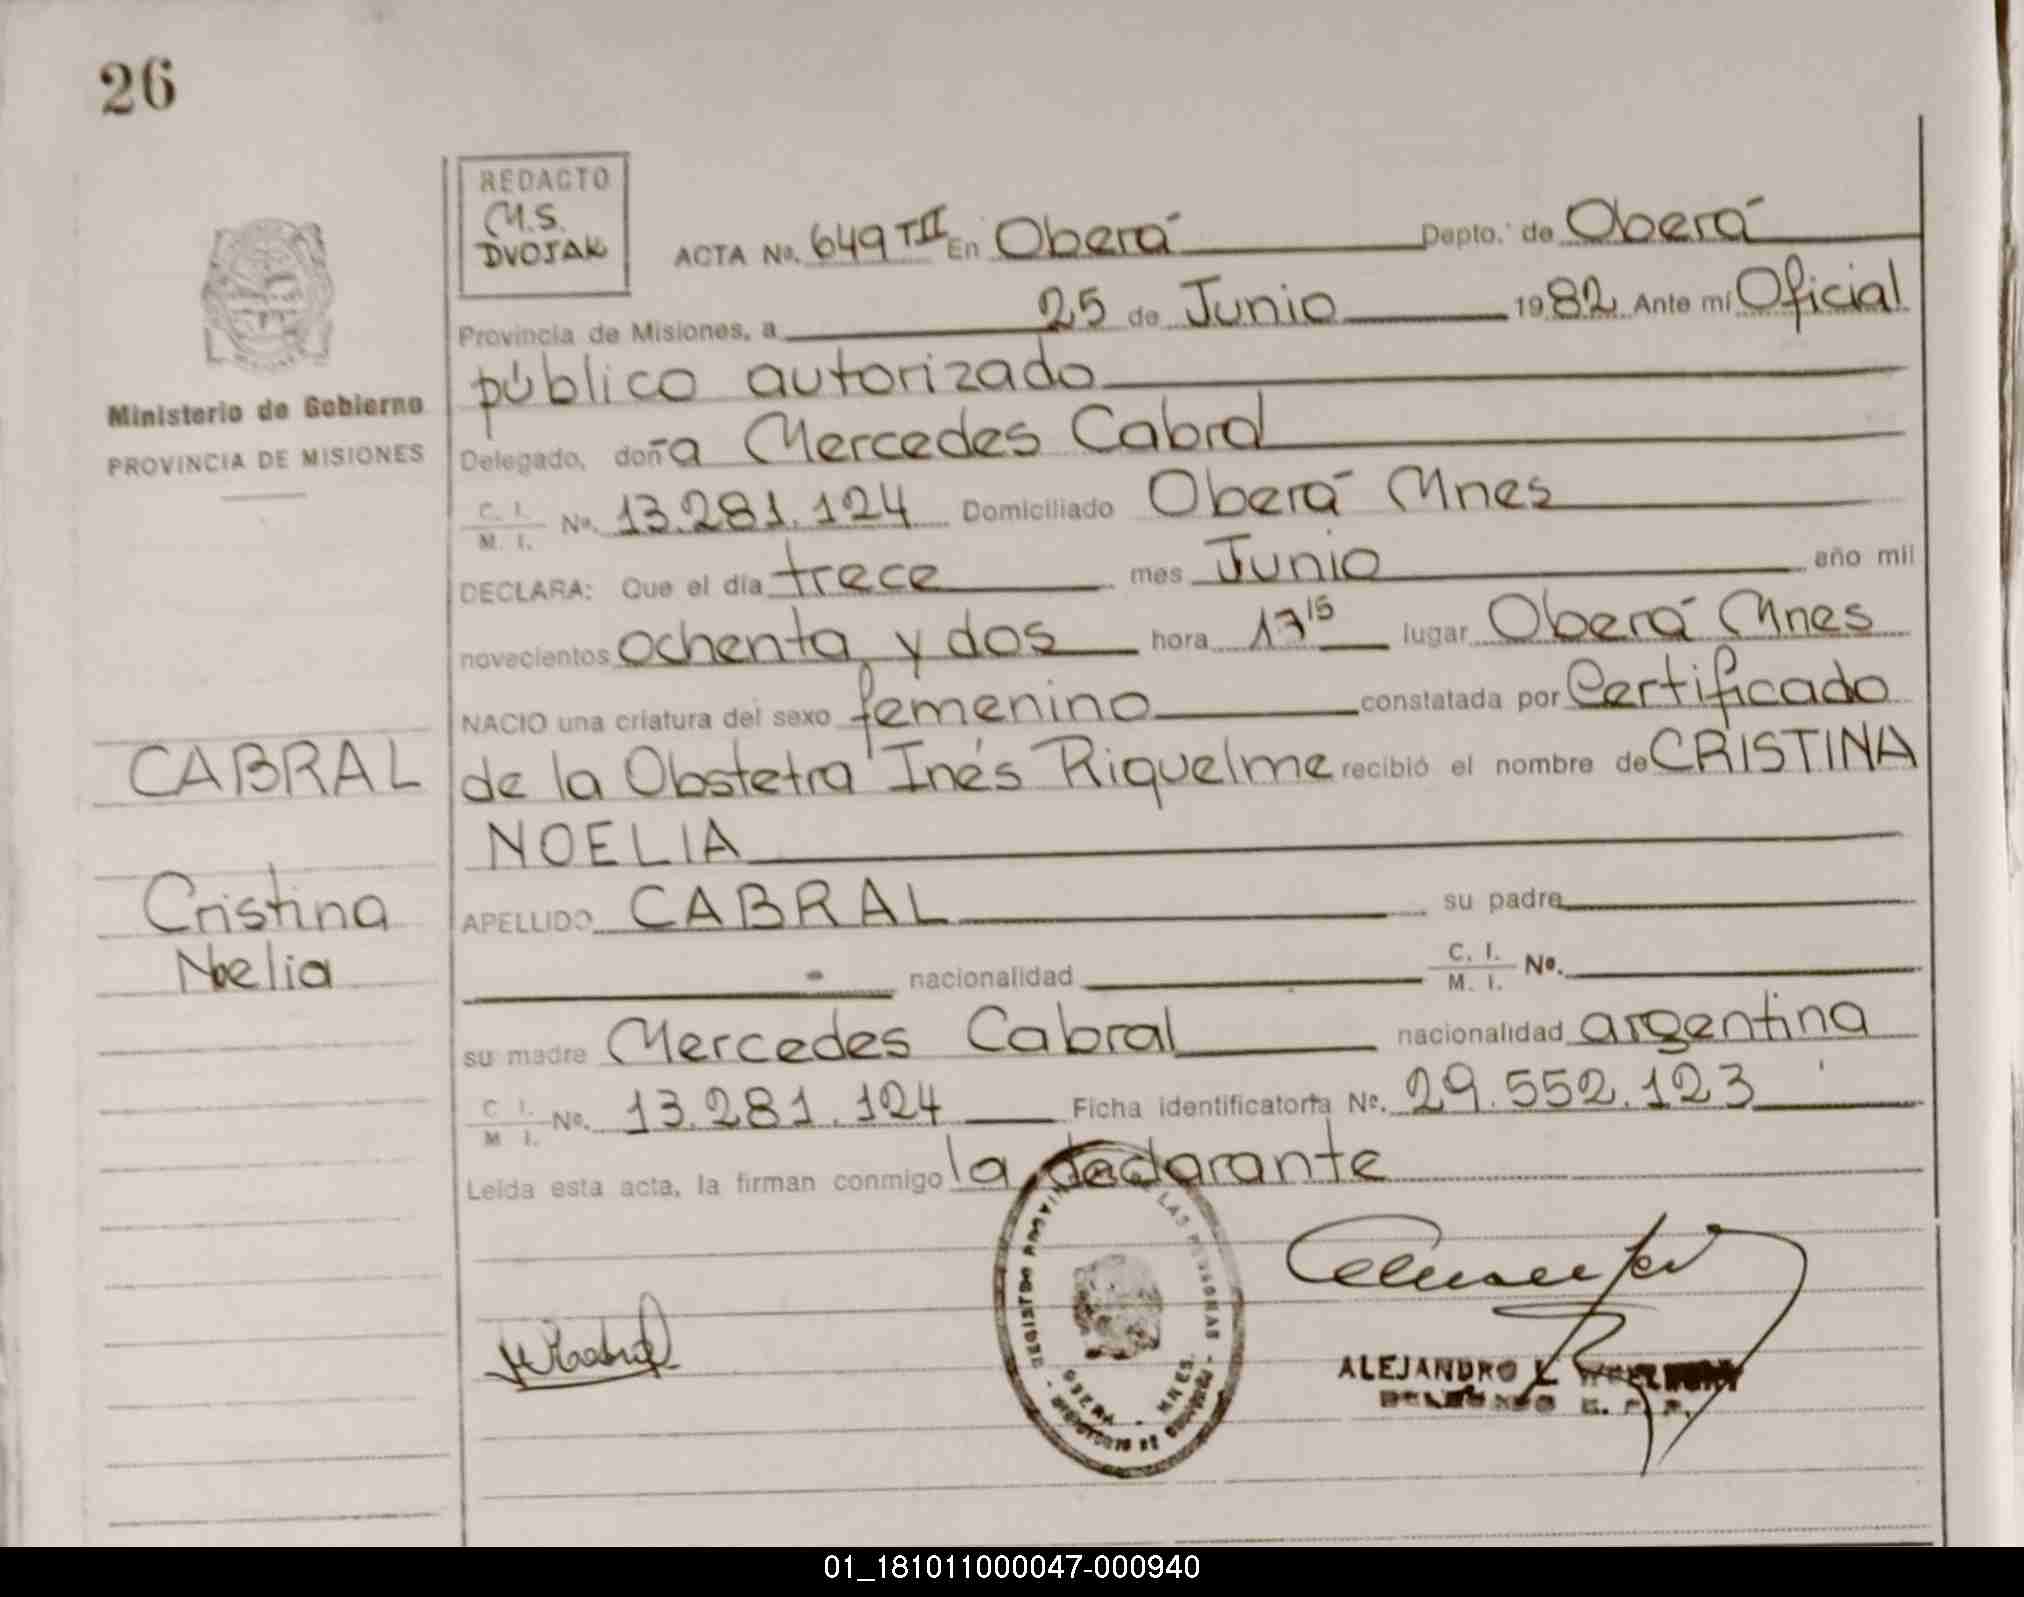 26
REDACTO
M.S.
DVOJAK
ACTA No. 649 TII En Oberá Depto. de Oberá
Provincia de Misiones, a 25 de Junio 1982 Ante mí Oficial
público autorizado
Ministerio de Gobierno
PROVINCIA DE MISIONES
Delegado, doña Mercedes Cabral
C. I.
M. I. No. 13.281.124 Domiciliado Oberá Mnes
DECLARA: Que el día trece mes Junio año mil
novecientos ochenta y dos hora 13 15 lugar Oberá Mnes
NACIO una criatura del sexo femenino constatada por Certificado
CABRAL
de la Obstetra Inés Riquelme recibió el nombre de CRISTINA
NOELIA
Cristina
Noelia
APELLIDO CABRAL su padre
nacionalidad C. I.
M. I. No.
su madre Mercedes Cabral nacionalidad argentina
C. I.
M. I. No. 13.281.124 Ficha identificatoria No. 29.552.123
Leída esta acta, la firman conmigo la declarante
REGISTRO PROVIN LAS PERSONAS
OBERA - MNES.
MCabral
ALEJANDRO L.
01_181011000047-000940